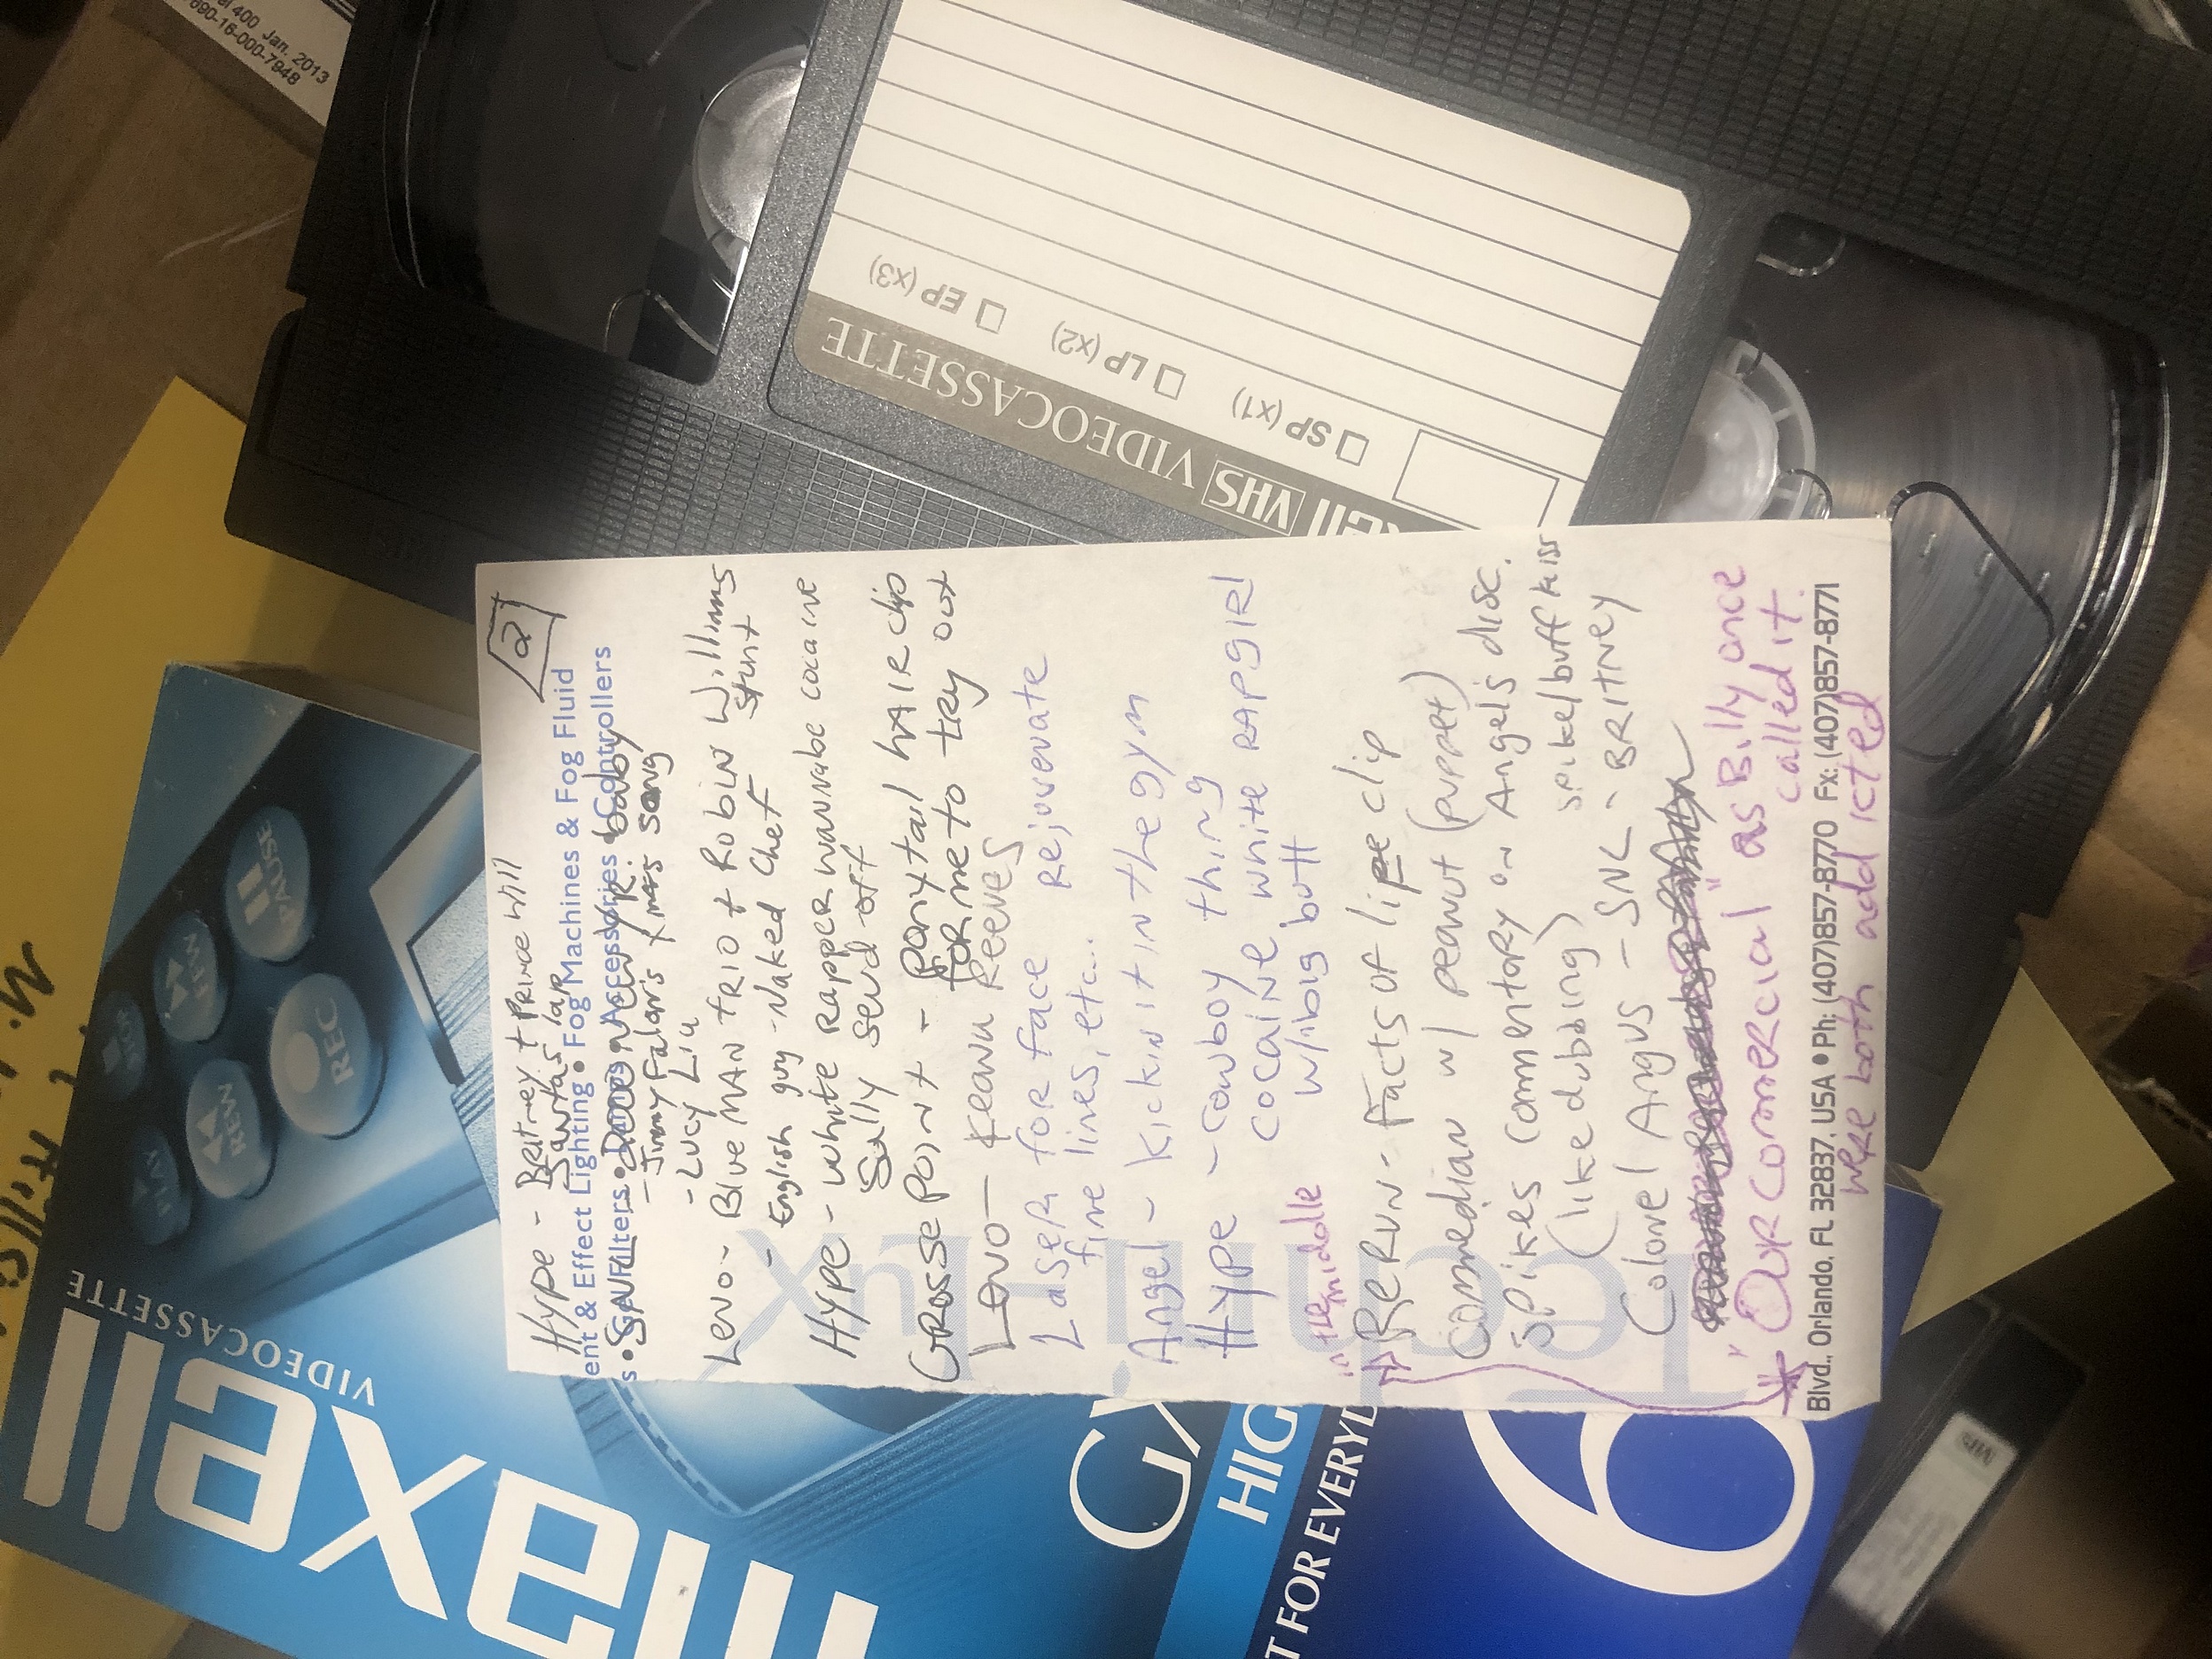 2
Hype - Britney + Prince Will
Santa's lap
ent & Effect Lighting • Fog Machines & Fog Fluid
s • Gel Filters • Dimmers Accessories • Controllers
SNL
- Jimmy Falon's xmas song
- Lucy Liu
Leno - Blue MAN TRIO + Robin Williams
stunt
- English guy - Naked Chef
Hype - White RAPPER wannabe cocaine
Sally send off
GROSSE POINT - PONYTAIL HAIR clip
FOR me to TRY out
Leno - Keanu Reeves
Laser FOR face Rejuvenate
fine lines, etc...
Angel - Kickin it in the gym
Hype - cowboy thing
COCAINE white RAPGIRL
w/big butt
in the middle
RERUN - Facts of life clip
Comedian w/ peanut (puppet)
Spikes commentory on Angel's disc.
(like dubbing)
spike/buff kiss
Colonel Angus - SNL - BRITNEY
* "Our Comercial" as Billy once
called it.
we're both addicted
Blvd., Orlando, FL 32837, USA • Ph: (407)857-8770 Fx: (407)857-8771
maxell
VIDEOCASSETTE
PLAY
STOP
REW
FF
REC
PAUSE
GX
HIG
T FOR EVERYD
6
xell VHS VIDEOCASSETTE
SP (x1) LP (x2) EP (x3)
el 400 Jan. 2013
690-16-000-7948